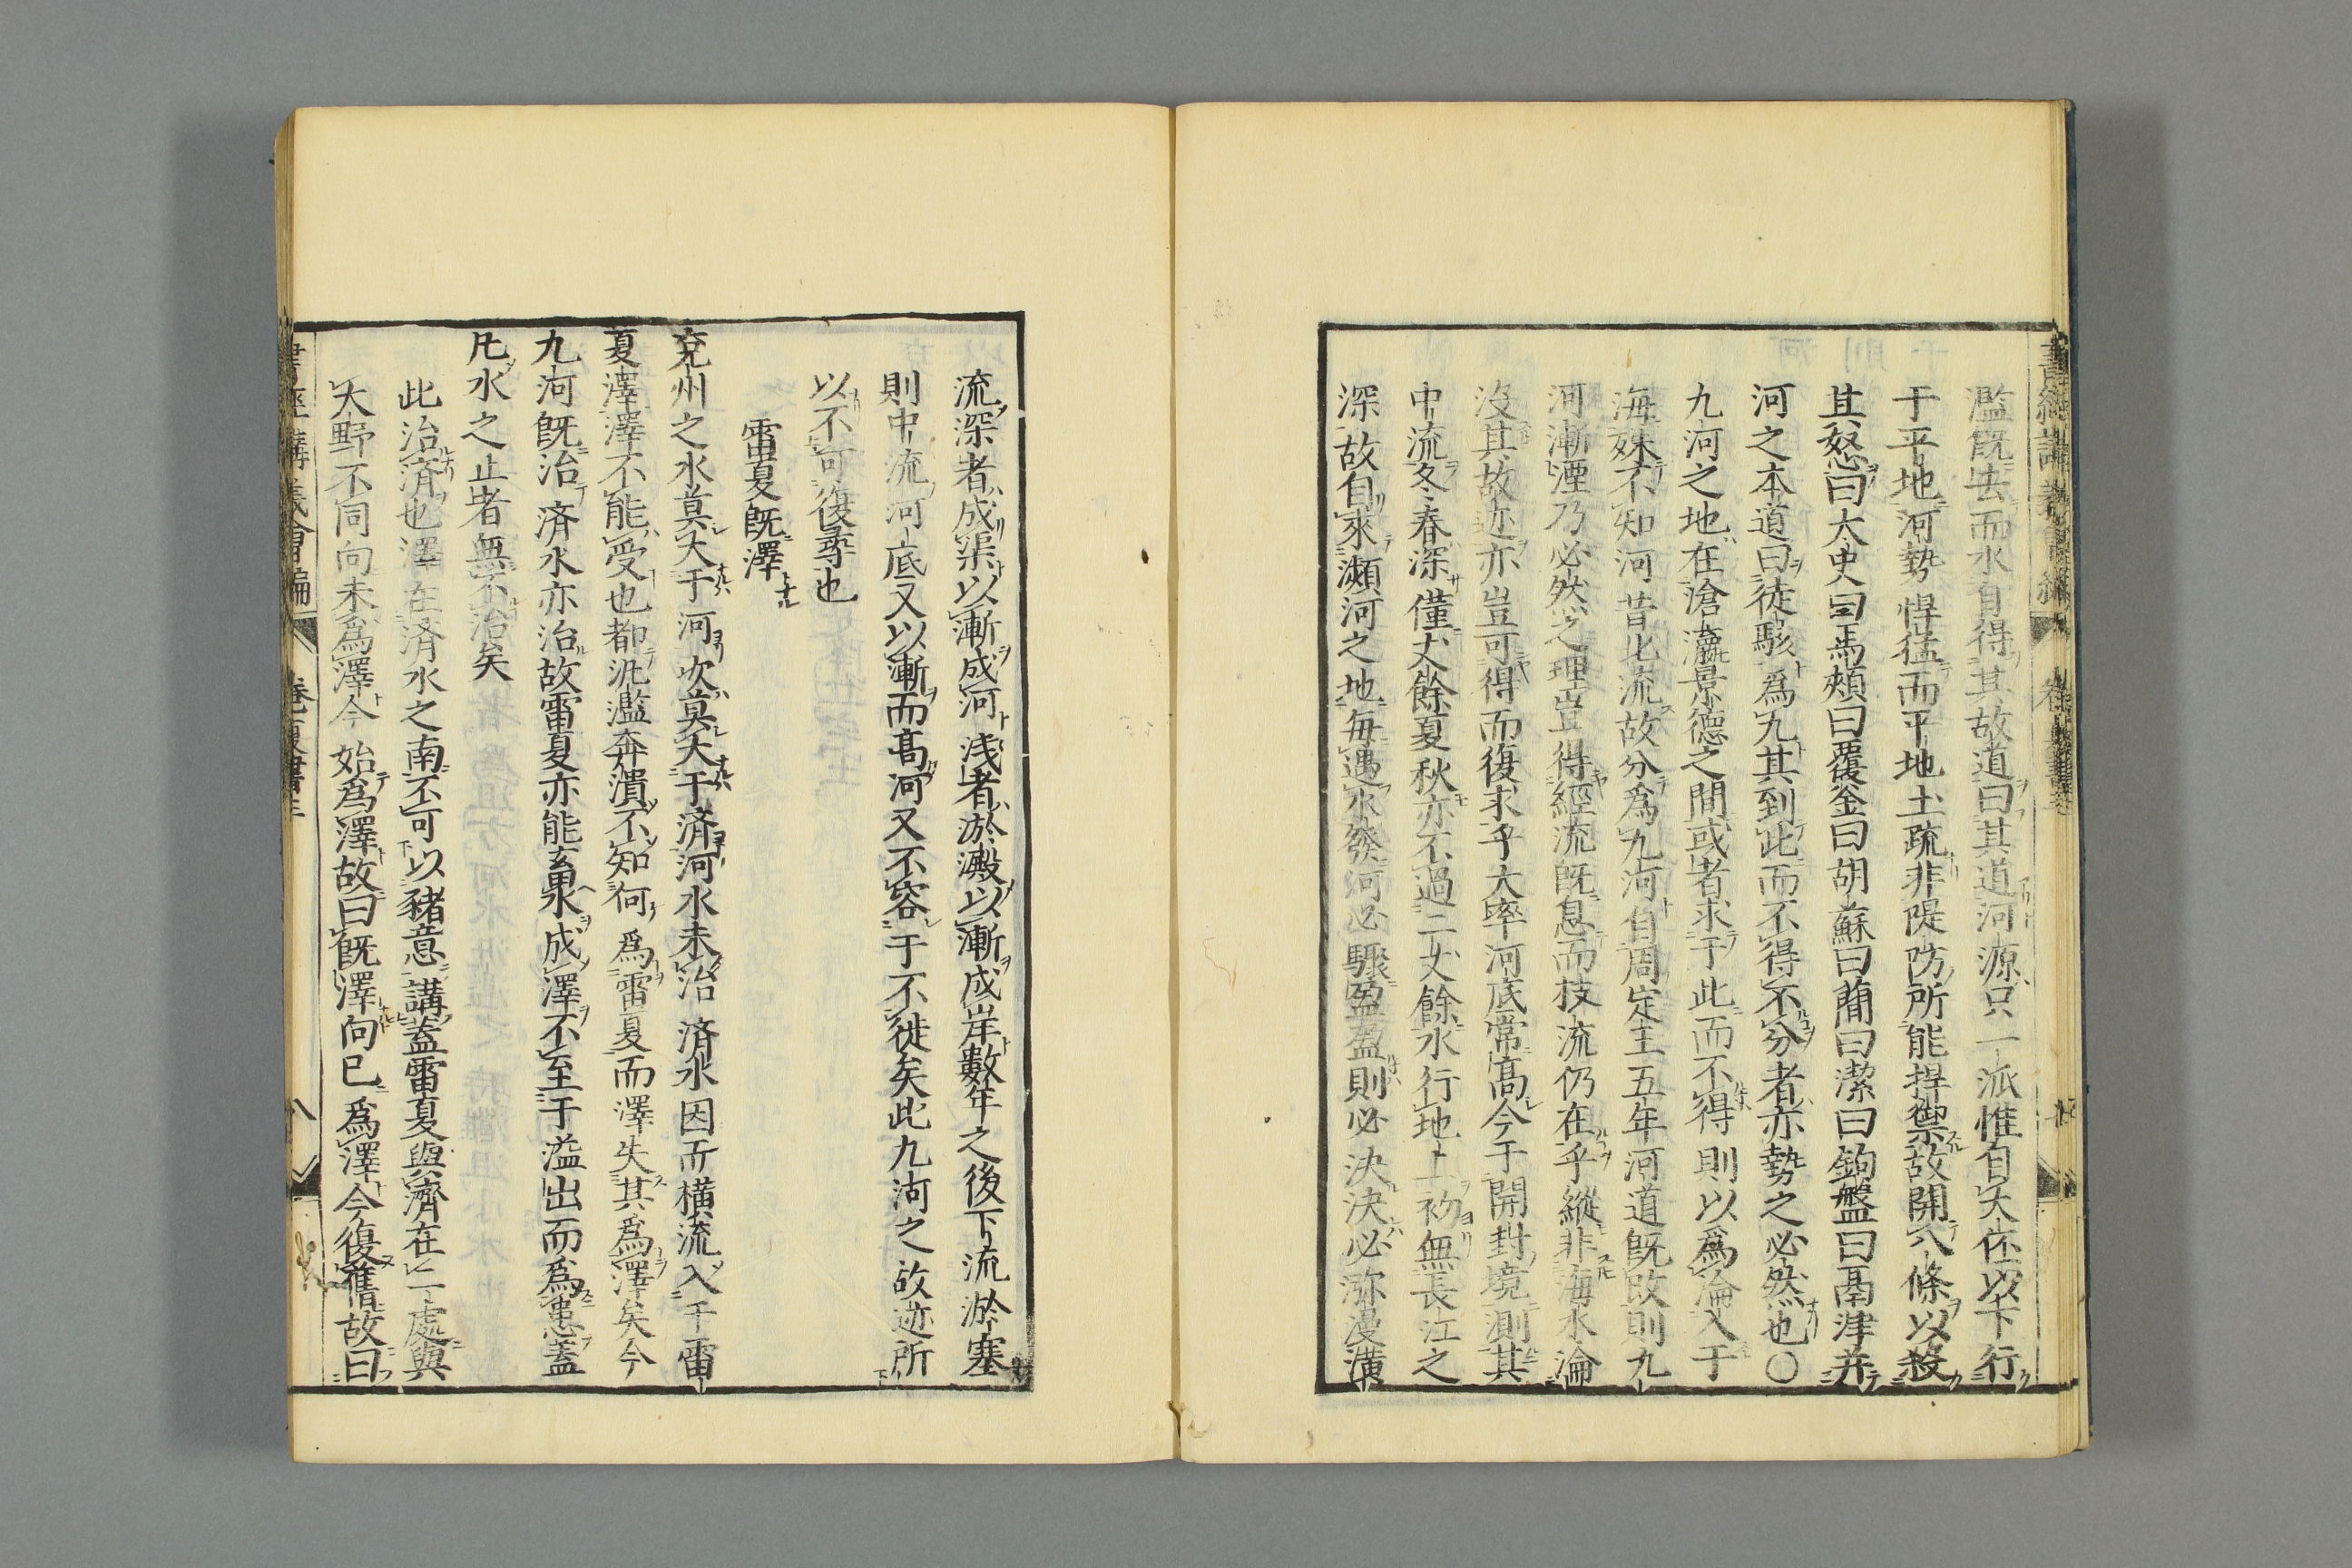 濫既去而水自得其故道曰其道河源只一派惟自大伾以下行
于平地河勢悍猛而平地土疏非隄防所能捍禦故開八條以殺
其怒曰太史曰馬頰曰覆釜曰胡蘇曰簡曰潔曰鉤盤曰鬲津并
河之本道曰徒駭爲九其到此而不得不分者亦勢之必然也〇
九河之地在滄瀛景德之間或者求于此而不得則以爲淪入于
海妹不知河昔北流故分爲九河自周定王五年河道既改則九
河漸湮乃必然之理豈得經流既息而枝流仍在乎縱非海水淪
沒其故迹亦豈可得而復求乎大率河底常高今于開封境測其
中流冬春深僅丈餘夏秋亦不過二丈餘水行地上初無長江之
深故自來瀕河之地每遇水發河必驟盈盈則必決決必瀰漫潢
流深者成渠以漸成河浅者淤澱以漸成岸數年之後下流淤塞
則中流河底又以漸而高河又不容于不徙矣此九河之故迹所
以不可復尋也
雷夏既澤
兗州之水莫大于河次莫大于済河水未治済水因而横流入于雷
夏澤澤不能受也都泛濫奔潰不知何爲雷夏而澤失其爲澤矣今
九河既治済水亦治故雷夏亦能畜水成澤不至于溢出而爲患蓋
凡水之止者無不治矣
此治済也澤在済水之南不可以豬意講蓋雷夏與濟在一處與
大野不同向未爲澤今始爲澤故曰既澤向已爲澤今復舊故曰
書經講義會編
書經講義會編